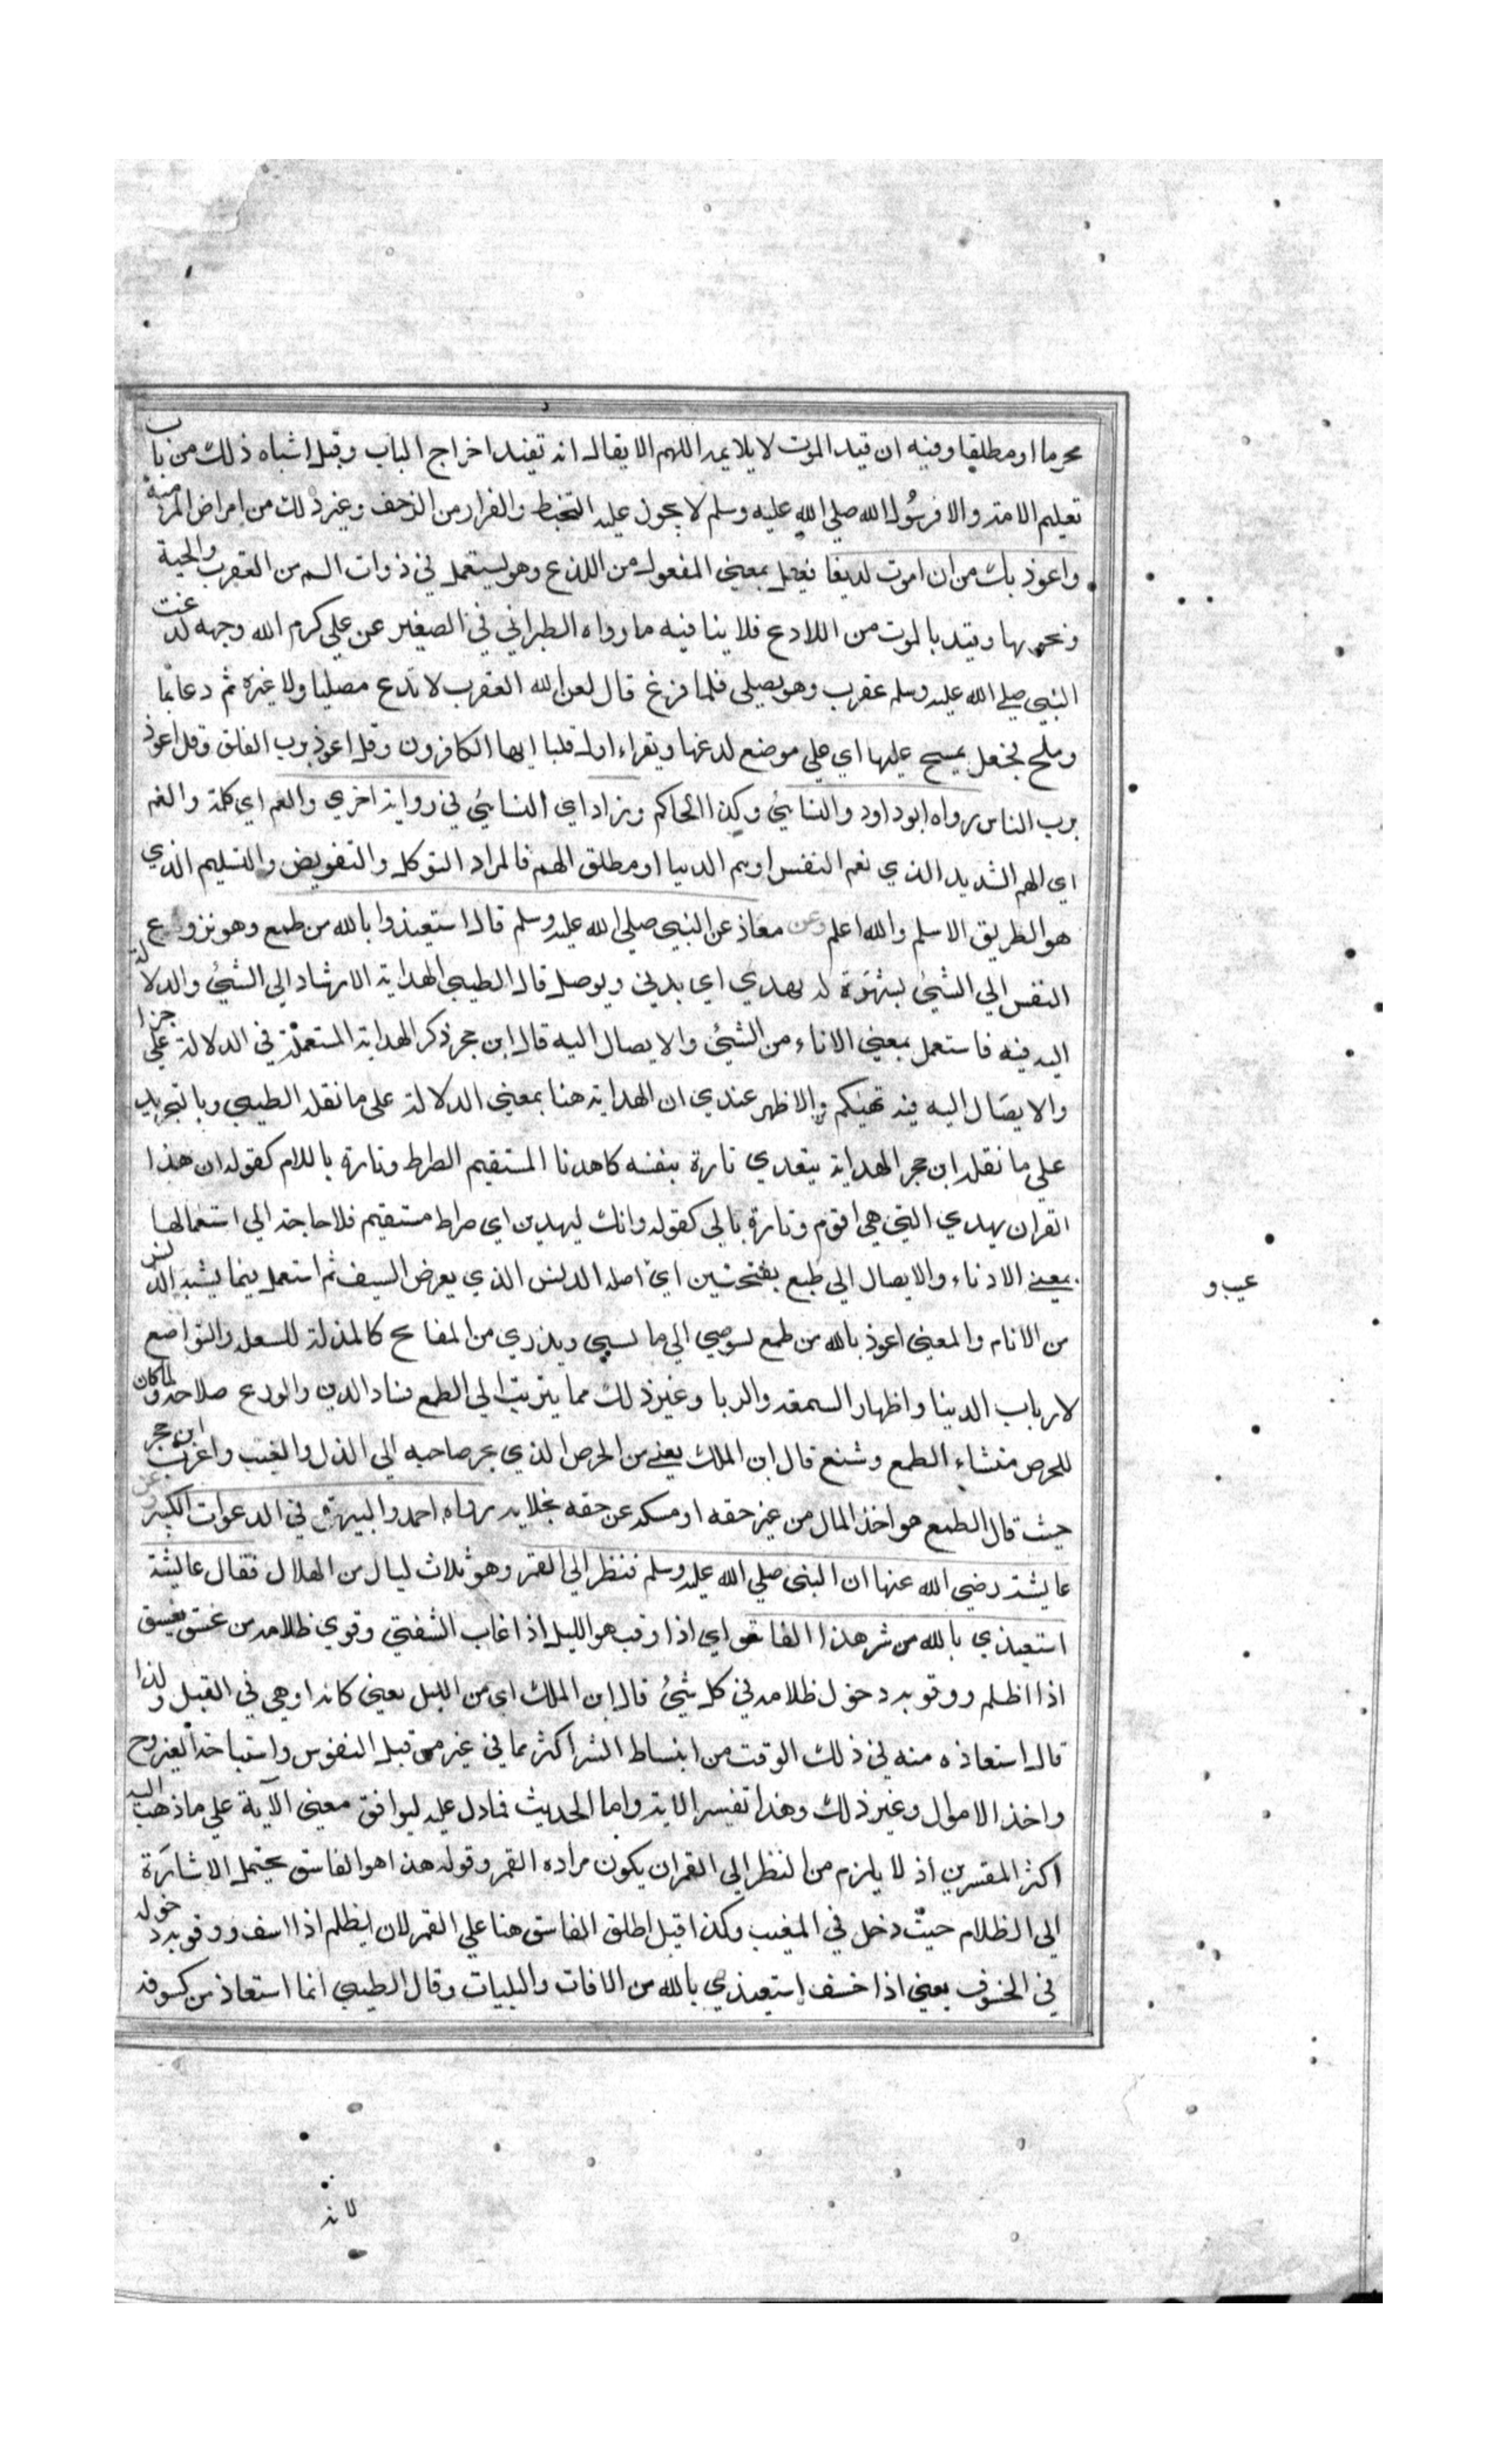 محرما او مطلقا وفيه ان قيد الموت لا يلايمه اللهم الا يقال انه تفيد اخراج الباب وقيل اشباه ذلك من باب
تعليم الامة والا فرسول الله صلي الله عليه وسلم لا يجول عليه التخبط والفرار من الزحف وغير ذلك من امراض المزمنة
واعوذ بك من ان اموت لديغا فعيل بمعني المفعول من اللدغ وهو يستعمل في ذوات السم من العقرب والحية
ونحوها وقيد بالموت من اللادع فلا ينافيه ما رواه الطبراني في الصغير عن علي كرم الله وجهه لدغت
النبي صلي الله عليه وسلم عقرب وهو يصلي فلما فرغ قال لعن الله العقرب لا تدع مصليا ولا غيره ثم دعا بما
وملح فجعل يمسح عليها اي علي موضع لدغها ويقراء اوله قل يا ايها الكافرون وقل اعوذ برب الفلق وقل اعوذ
برب الناس رواه ابو داود والنسايئ وكذا الحاكم وزاد اي النسايئ في رواية اخري والغم اي كلمة والغم
اي الهم الشديد الذي نغم النفس او بهم الدنيا او مطلق الهم فالمراد التوكل والتفويض والتسليم الذي
هو الطريق الاسلم والله اعلم وعن معاذ عن النبي صلي الله عليه وسلم قال استعيذوا بالله من طمع وهو نزوع
النفس الي الشيئ لشهوة له يهدي اي يدني ويوصل قال الطيبي الهداية الارشاد الي الشيئ والدلالة
اليه فيه فاستعمل بمعني الاناء من الشيئ والايصال اليه قال ابن حجر ذكر الهداية المستعملة في الدلالة علي جزا
والايصال اليه فيه تهيكم والاظهر عندي ان الهداية هنا بمعني الدلالة علي ما نقله الطيبي وبالتجريد
علي ما نقله ابن حجر الهداية يتعدي تارة بنفسه كاهدنا المستقيم الطرط وتارة باللام كقوله ان هذا
القران يهدي التي هي اقوم وتارة بالي كقوله وانك ليهدين اي صراط مستقيم فلا حاجة الي استعمالها
بمعني الادناء والايصال الي طبع بفتحتين اي اصله الدنس الذي يعرض السيف ثم استعمل فيما يشبه الدنس
من الانام والمعني اعوذ بالله من طمع يسوصي الي ما يسبي ويذري من المفاتح كالمذلة للسعلة والتواضع
لارباب الدنيا واظهار السمعة والريا وغير ذلك مما يترتب الي الطمع فساد الدين والورع صلاحه ولما كان
للحرص منشاء الطمع وشنع قال ابن الملك يعني من الحرص الذي يجر صاحبه الي الذل والغيب واغرب ابن حجر
حيث قال الطمع هو اخذ المال من غير حقه او مسكه عن حقه بخلا به رواه احمد والبيهقي في الدعوات الكبير وعن
عايشة رضي الله عنها ان النبي صلي الله عليه وسلم فنظر الي القمر وهو ثلاث ليال من الهلال فقال عايشة
استعيذي بالله من شر هذا الغاسق اي اذا وقب هو الليل اذا غاب الشفق وقوي ظلامه من غسق يغسق
اذا اظلم ووقوبه دخول ظلامه في كل شيئ قال ابن الملك اي من الليل يعني كانه اوهي في القبل ولذا
قال استعاذه منه في ذلك الوقت من ابنساط الشر اكثر مما في غير من قبل النفوس واستباحة الفروج
واخذ الاموال وغير ذلك وهذا تفسير الاية واما الحديث فمادل عليه ليوافق معني الآية علي ما ذهب اليه
اكثر المفسرين اذ لا يلزم من النظر الي القمر ان يكون مراده القمر وقوله هذا هو الغاسق يحتمل الاشارة
الي الظلام حيث دخل في المغيب وكذا قيل اطلق الغاسق هنا علي القمر لان يظلم اذا اسف ووقوبه دخوله
في الخسوف يعني اذا خسف استعيذي بالله من الافات والبليات وقال الطيبي انما استعاذ من كسوفه
عيب و
لانه